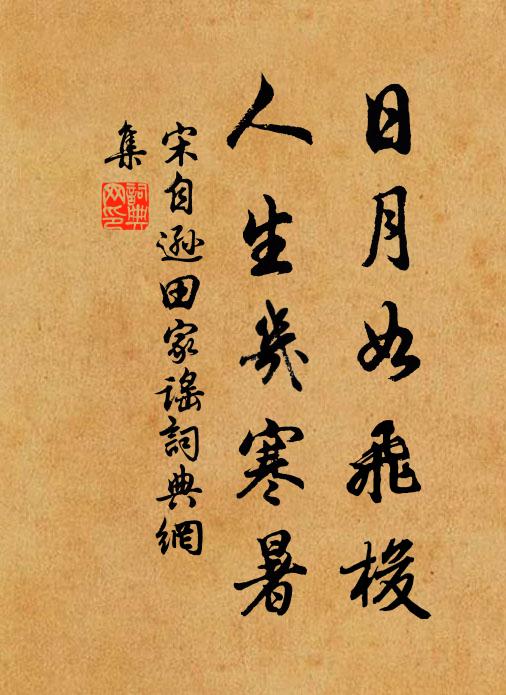 日月如飛梭
人生幾寒暑
宋自遜田家謠詞典網
集
詞典網印